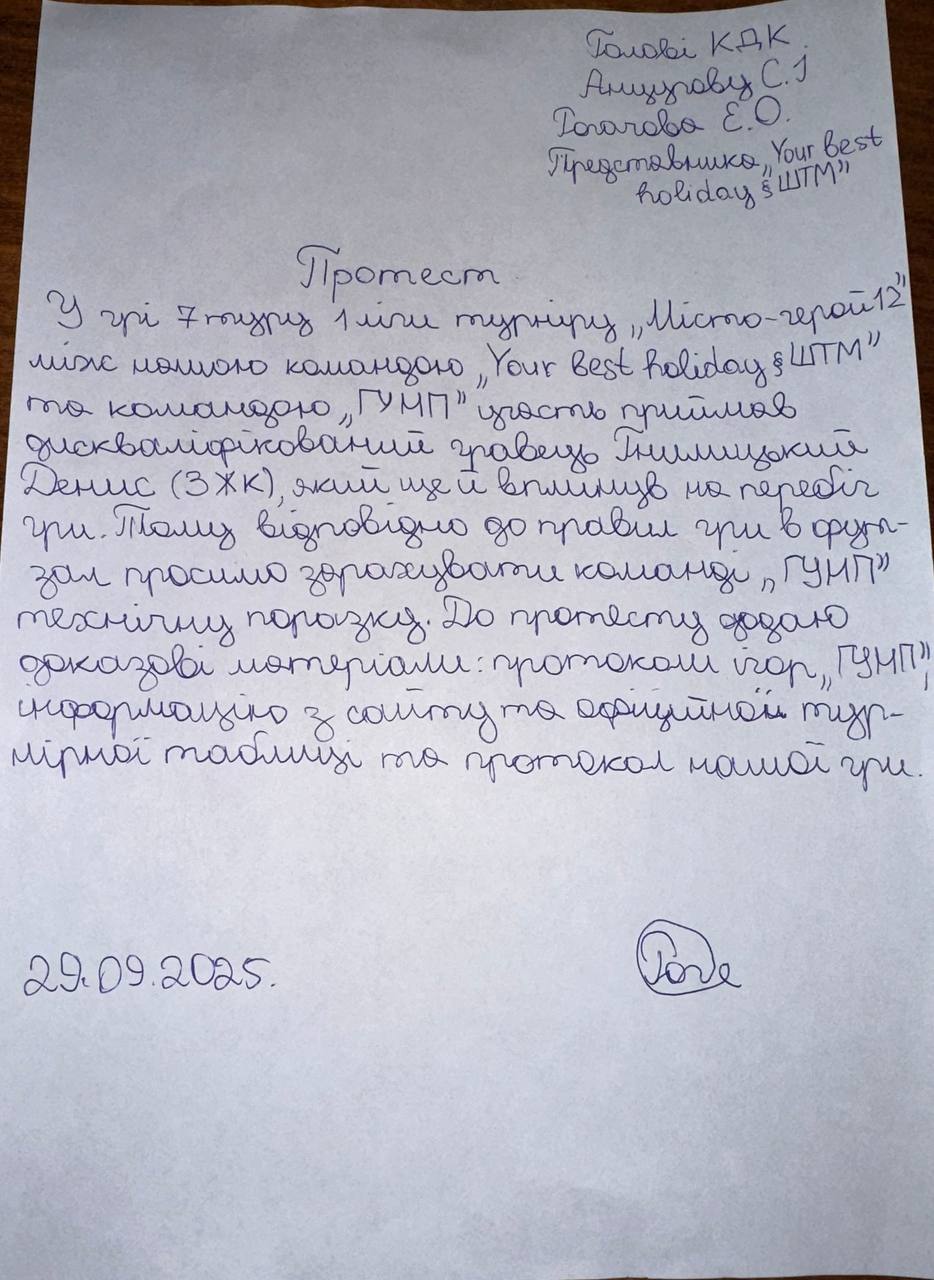 Голові КДК
Анцупову С.І
Рогачова Е.О.
Представника „Your best
holiday § ШТМ”
Протест
У грі 7 туру 1 ліги турніру „Місто-герой 12”
між нашою командою „Your best holiday § ШТМ”
та командою „ГУНП” участь приймав
дискваліфікований гравець Гнилицький
Денис (3ЖК), який ще й вплинув на перебіг
гри. Тому відповідно до правил гри в фут-
зал просимо зарахувати команді „ГУНП”
технічну поразку. До протесту додаю
доказові матеріали: протоколи ігор „ГУНП”,
інформацію з сайту та офіційної тур-
нірної таблиці та протокол нашої гри.
29.09.2025.